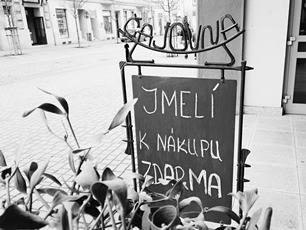 ČAJOVNA
JMELÍ
K NÁKUPU
ZDARMA